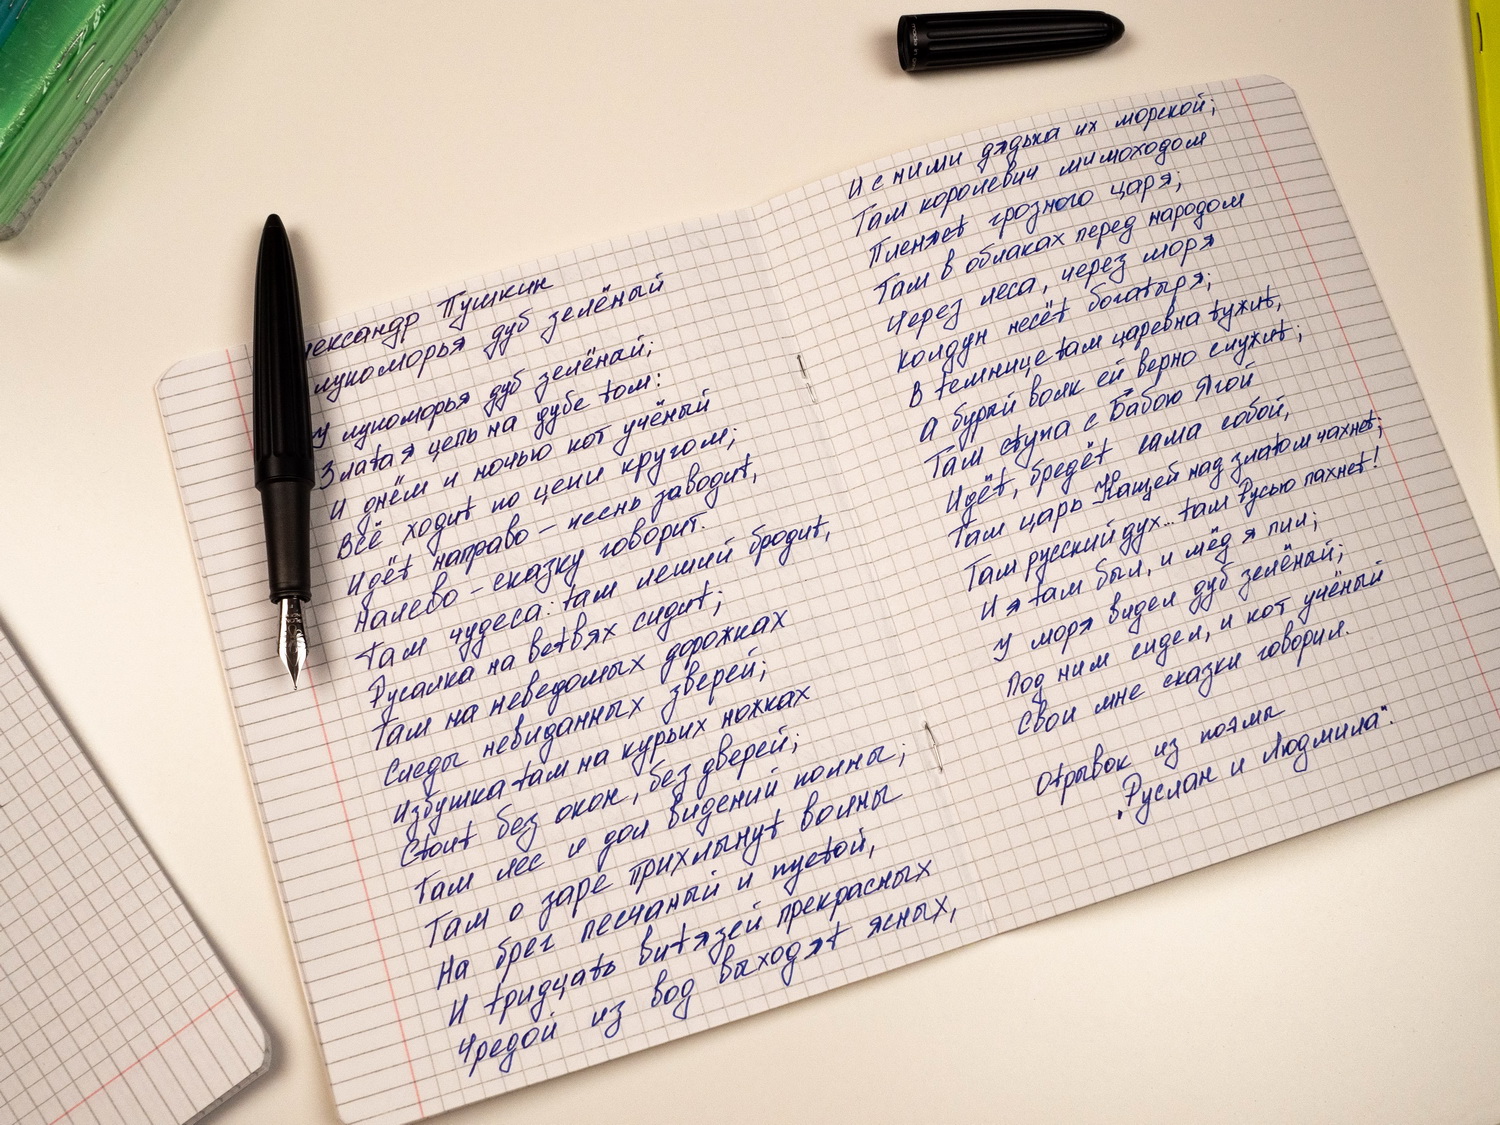 лександр Пушкин
лукоморья дуб зелёный
У лукоморья дуб зелёный;
Златая цепь на дубе том:
И днём и ночью кот учёный
Всё ходит по цепи кругом;
Идёт направо – песнь заводит,
Налево – сказку говорит.
Там чудеса: там леший бродит,
Русалка на ветвях сидит;
Там на неведомых дорожках
Следы невиданных зверей;
Избушка там на курьих ножках
Стоит без окон, без дверей;
Там лес и дол видений полны;
Там о заре прихлынут волны
На брег песчаный и пустой,
И тридцать витязей прекрасных
Чредой из вод выходят ясных,
И с ними дядька их морской;
Там королевич мимоходом
Пленяет грозного царя;
Там в облаках перед народом
Через леса, через моря
Колдун несёт богатыря;
В темнице там царевна тужит,
А бурый волк ей верно служит;
Там ступа с Бабою Ягой
Идёт, бредёт сама собой,
Там царь Кащей над златом чахнет;
Там русский дух... там Русью пахнет!
И я там был, и мёд я пил;
У моря видел дуб зелёный;
Под ним сидел, и кот учёный
Свои мне сказки говорил.
Отрывок из поэмы
„Руслан и Людмила".